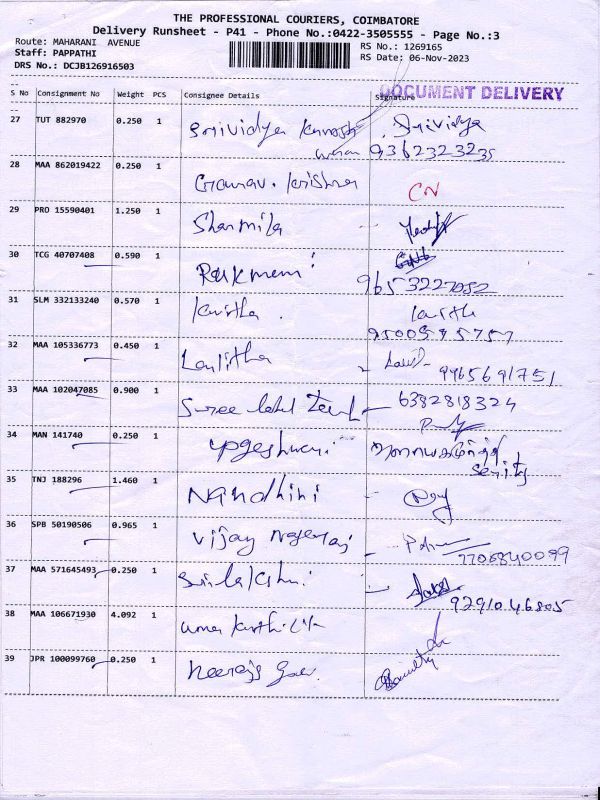 THE PROFESSIONAL COURIERS, COIMBATORE
Delivery Runsheet - P41 - Phone No.:0422-3505555 - Page No.:3
Route: MAHARANI AVENUE RS No.: 1269165
Staff: PAPPATHI RS Date: 06-Nov-2023
DRS No.: DCJB126916503
DOCUMENT DELIVERY
S No Consignment No Weight PCS Consignee Details Signature
27 TUT 882970 0.250 1 Srividya Srividya
9362323235
28 MAA 862019422 0.250 1 Gaurav. Krishna CN
29 PRO 15590401 1.250 1 Sharmila
30 TCG 40707408 0.590 1 Rukmani
9653227052
31 SLM 332133240 0.570 1 Kavitha . Kavitha
9500595757
32 MAA 105336773 0.450 1 Lalitha
9965691751
33 MAA 102047085 0.900 1 Sree 6382818324
34 MAN 141740 0.250 1 Yogeshwari
35 TNJ 188296 1.460 1 Nandhini
36 SPB 50190506 0.965 1 Vijay Nagaraj
7706840099
37 MAA 571645493 0.250 1 Srilakshmi
9291046805
38 MAA 106671930 4.092 1 uma Karthick
39 JPR 100099760 0.250 1 Neeraja